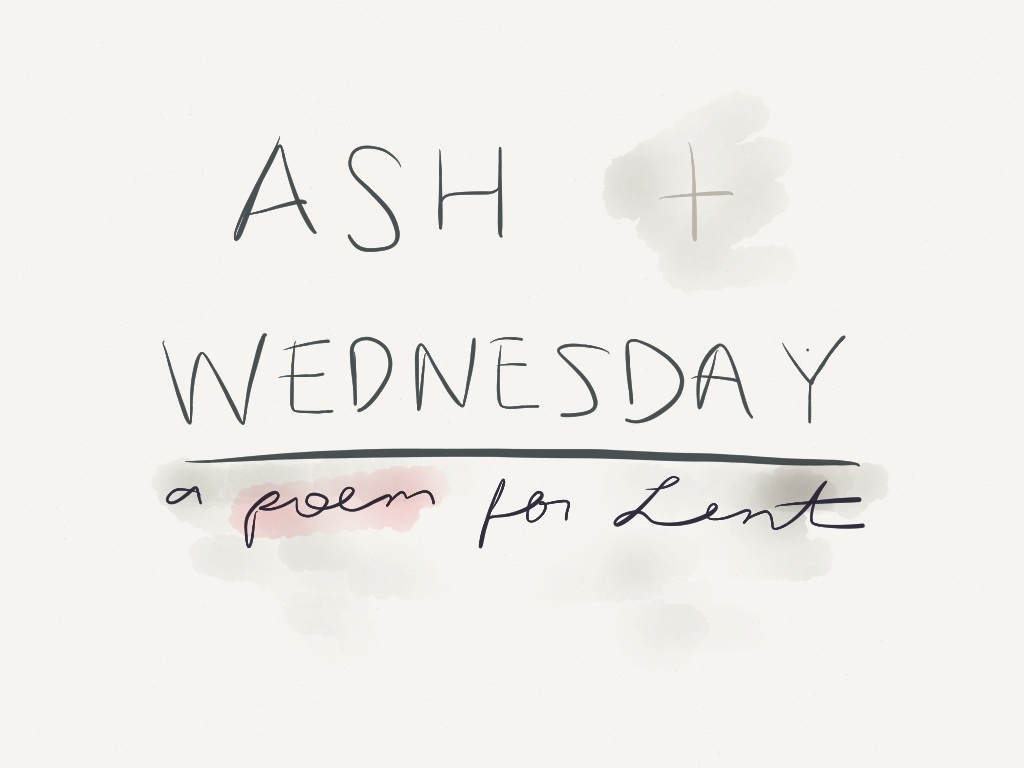 ASH
WEDNESDAY
a poem for Lent